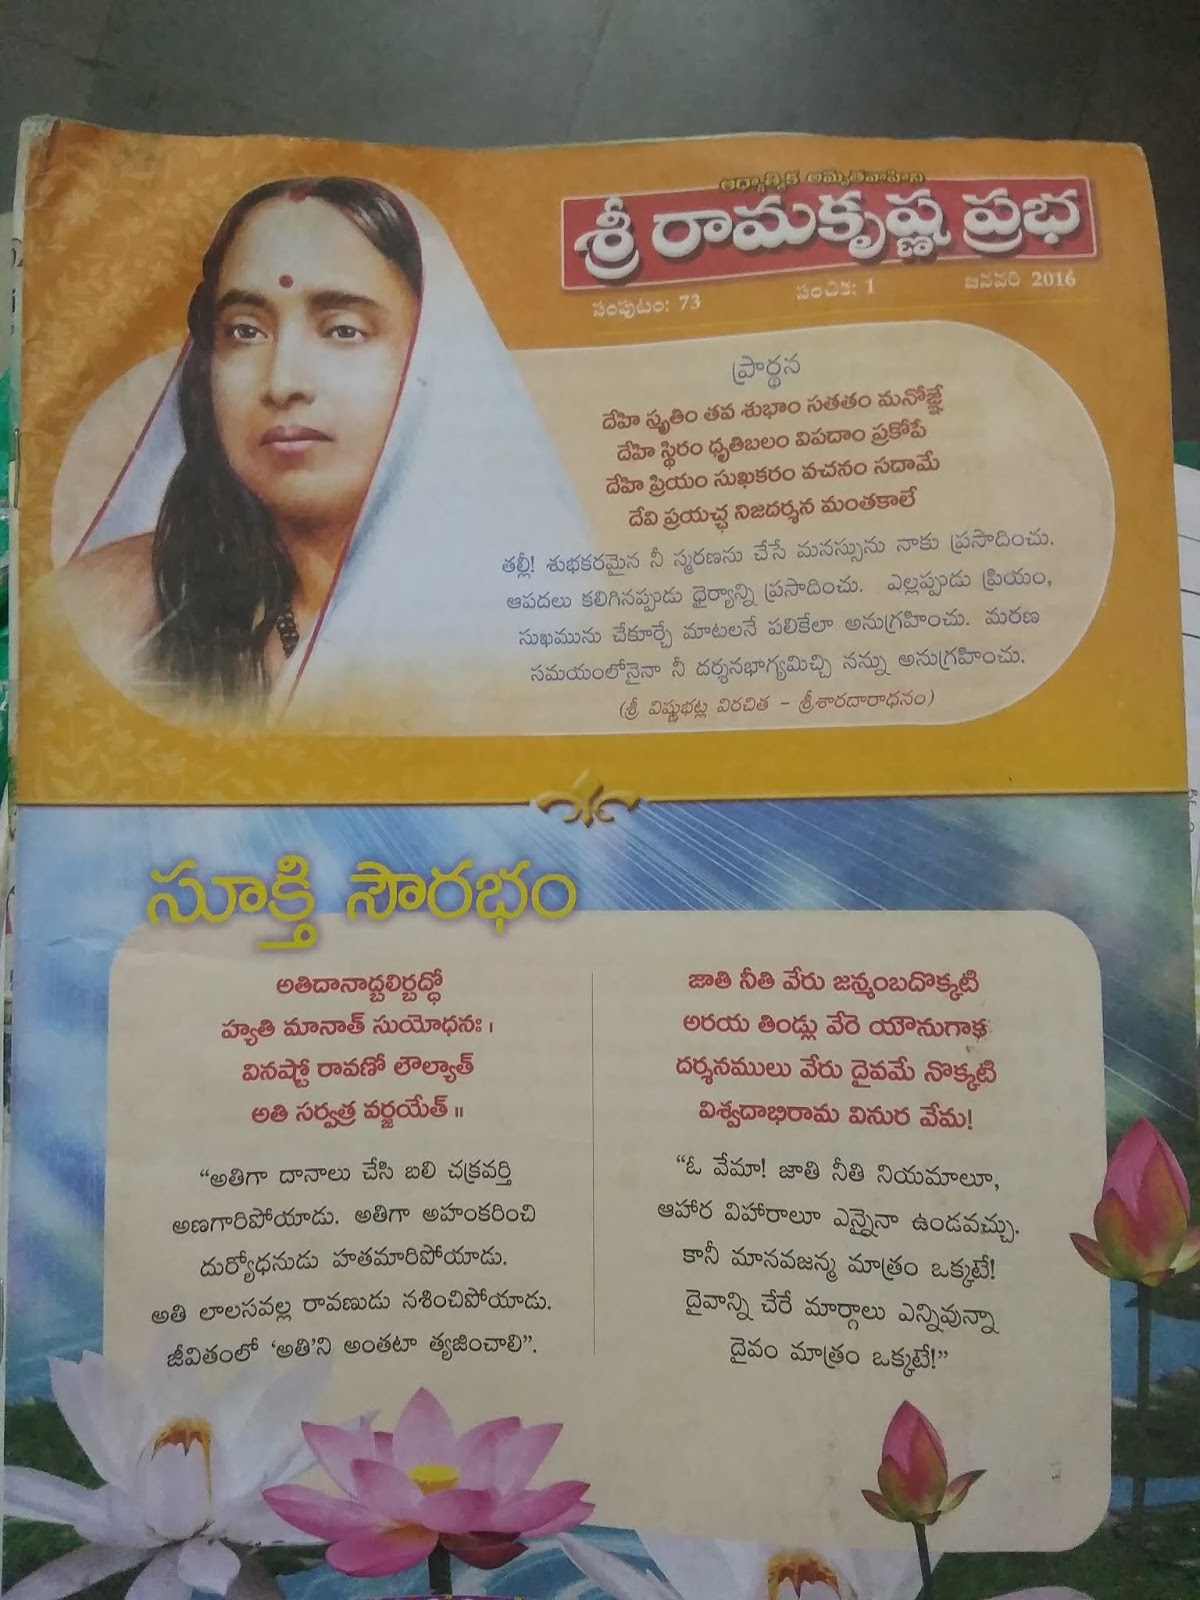 ఆధ్యాత్మిక అమృతవాహిని
శ్రీ రామకృష్ణ ప్రభ
సంపుటం: 73 సంచిక: 1 జనవరి 2016
ప్రార్థన
దేహి స్మృతిం తవ శుభాం సతతం మనోజ్ఞే
దేహి స్థిరం ధృతిబలం విపదాం ప్రకోపే
దేహి ప్రియం సుఖకరం వచనం సదామే
దేవి ప్రయచ్ఛ నిజదర్శన మంతకాలే
తల్లీ! శుభకరమైన నీ స్మరణను చేసే మనస్సును నాకు ప్రసాదించు.
ఆపదలు కలిగినప్పుడు ధైర్యాన్ని ప్రసాదించు. ఎల్లప్పుడు ప్రియం,
సుఖమును చేకూర్చే మాటలనే పలికేలా అనుగ్రహించు. మరణ
సమయంలోనైనా నీ దర్శనభాగ్యమిచ్చి నన్ను అనుగ్రహించు.
(శ్రీ విష్ణుభట్ల విరచిత – శ్రీశారదారాధనం)
సూక్తి సౌరభం
అతిదానాద్బలిర్బద్ధో
హ్యతి మానాత్ సుయోధనః ।
వినష్టో రావణో లౌల్యాత్
అతి సర్వత్ర వర్జయేత్ ॥
“అతిగా దానాలు చేసి బలి చక్రవర్తి
అణగారిపోయాడు. అతిగా అహంకరించి
దుర్యోధనుడు హతమారిపోయాడు.
అతి లాలసవల్ల రావణుడు నశించిపోయాడు.
జీవితంలో ‘అతి’ని అంతటా త్యజించాలి”.
జాతి నీతి వేరు జన్మంబదొక్కటి
అరయ తిండ్లు వేరె యౌనుగాక
దర్శనములు వేరు దైవమే నొక్కటి
విశ్వదాభిరామ వినుర వేమ!
“ఓ వేమా! జాతి నీతి నియమాలూ,
ఆహార విహారాలూ ఎన్నైనా ఉండవచ్చు.
కానీ మానవజన్మ మాత్రం ఒక్కటే!
దైవాన్ని చేరే మార్గాలు ఎన్నివున్నా
దైవం మాత్రం ఒక్కటే!”